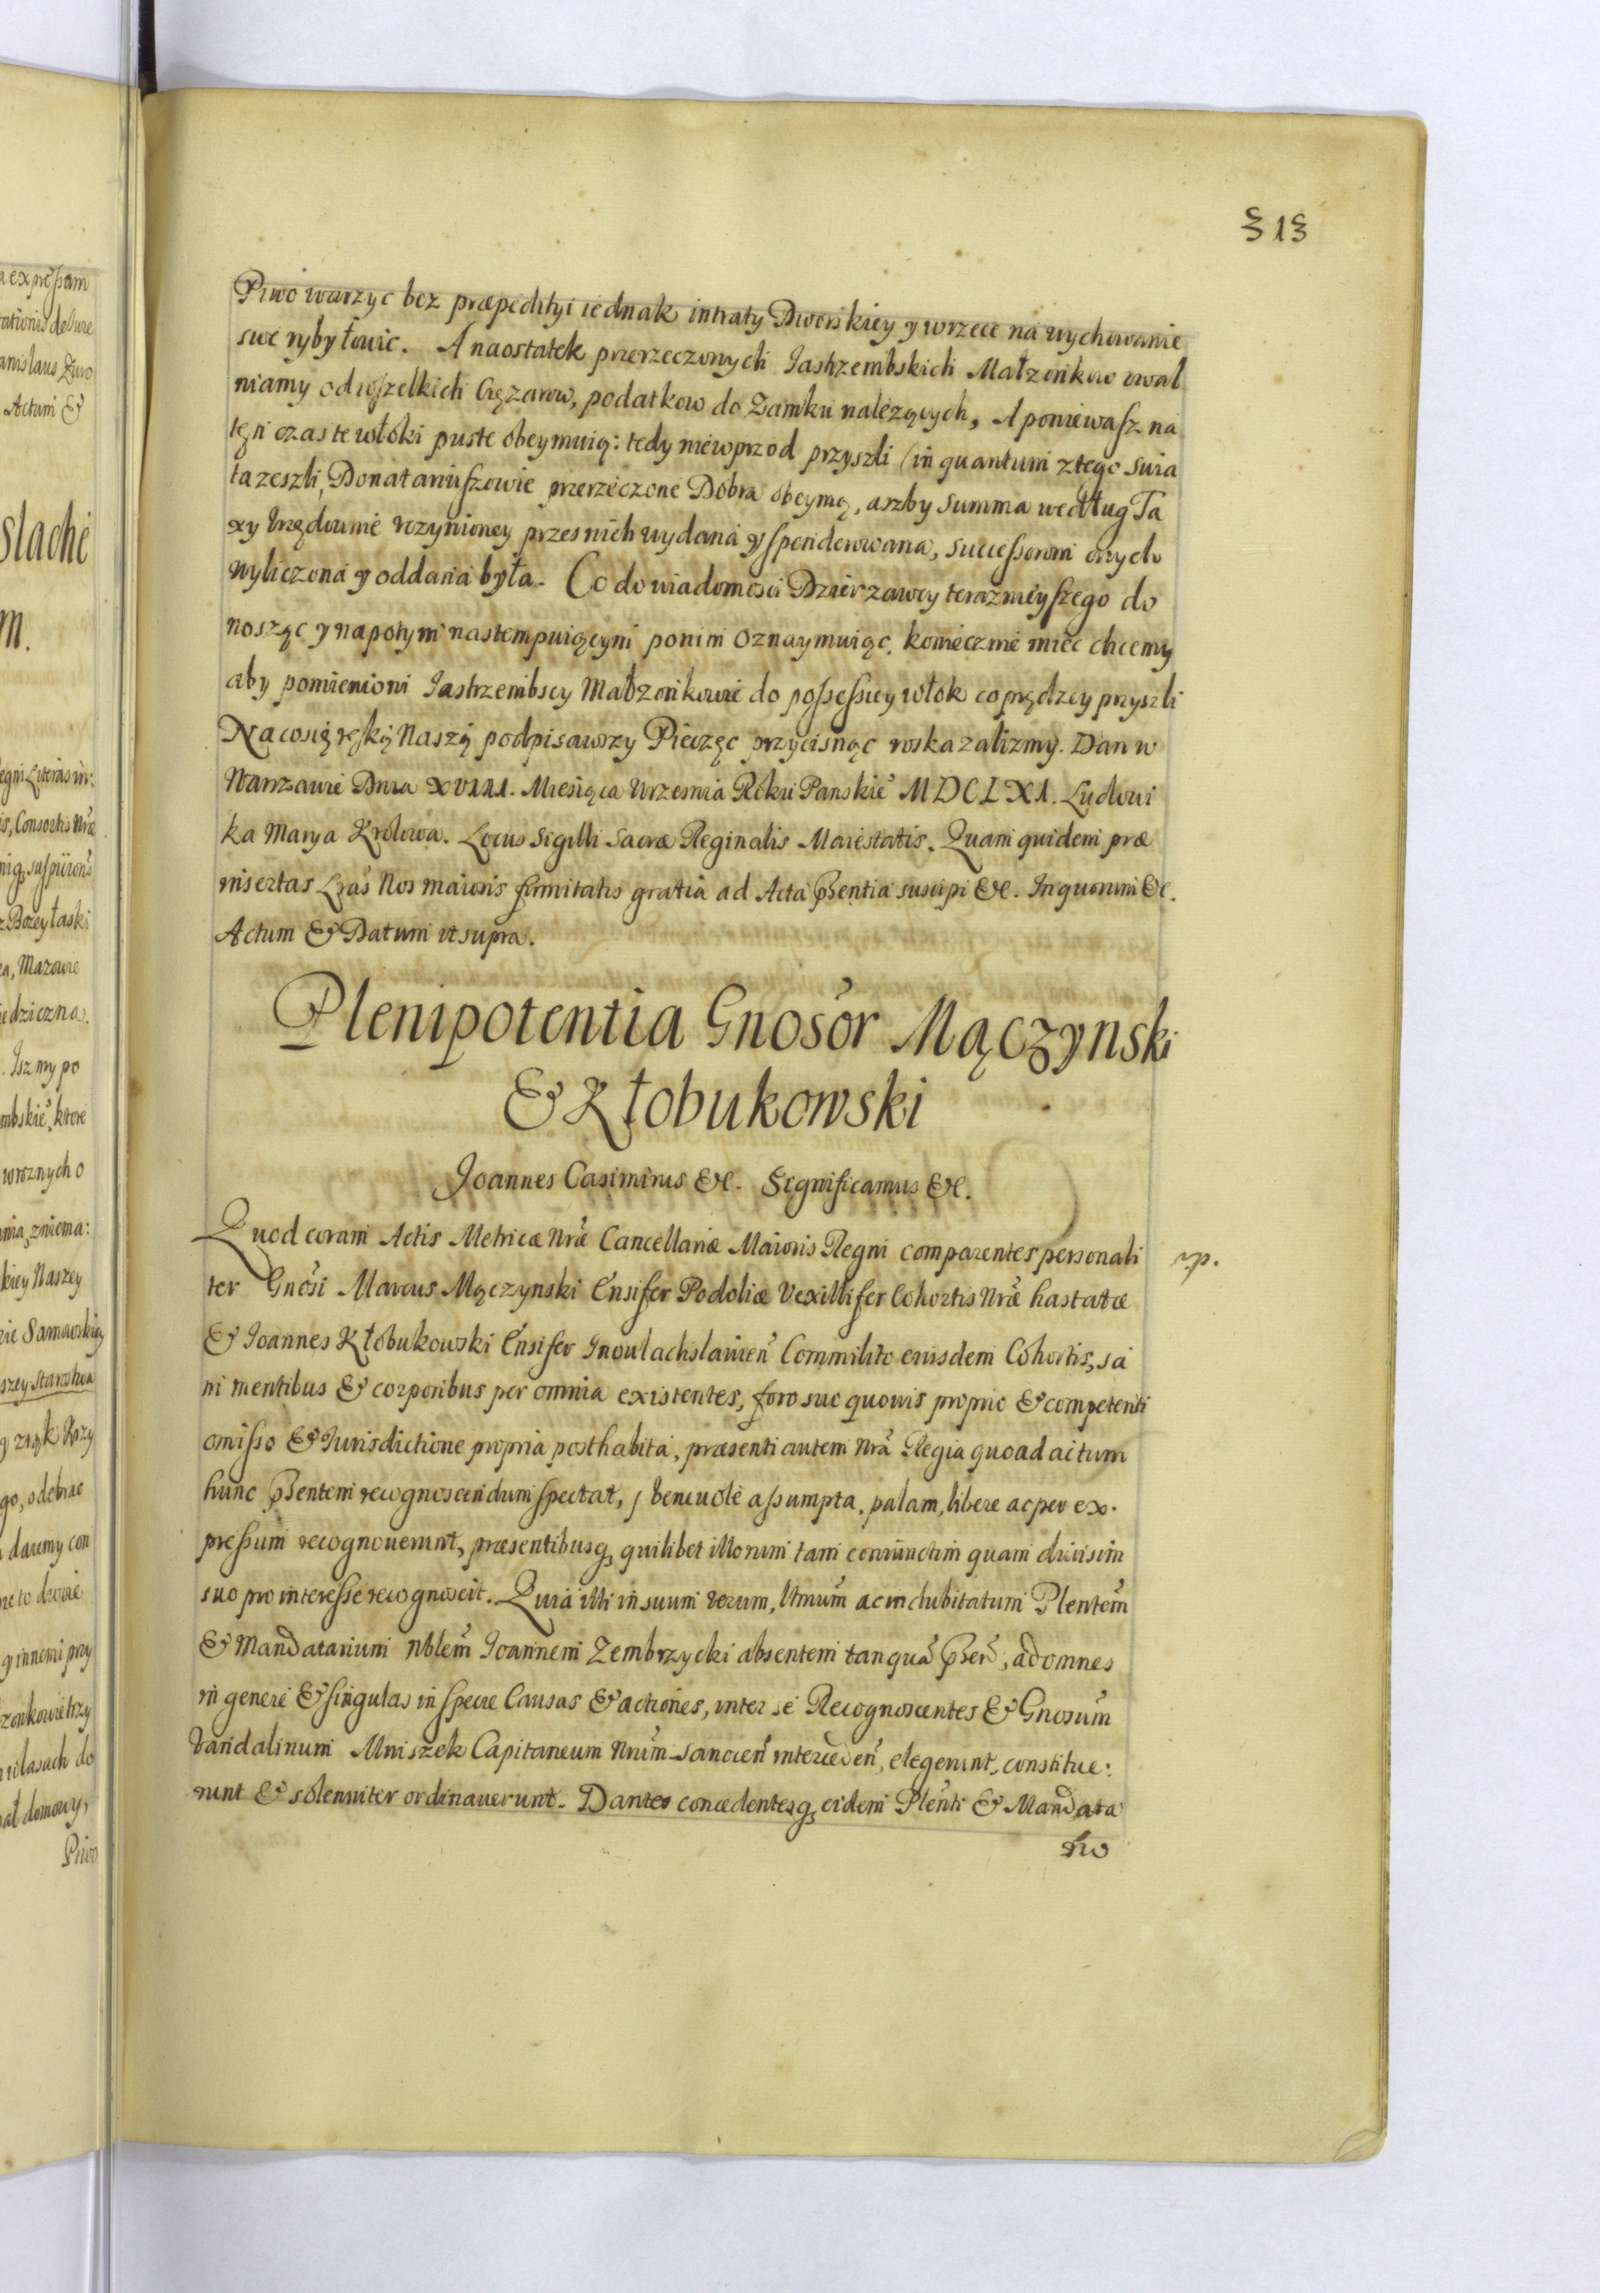 313
Piwo warzyc bez præpedityi iednak intraty Dworskiey y wrzece na wychowanie
swe ryby łowic. A naostatek przerzeczonych Jastrzembskich Małzonkow uwal
niamy od wszelkich Cięzarow, podatkow do Zamku nalezących, A poniewasz na
tęn czas te włoki puste obeymuią: tedy niewprzod przyszli (in quantum z tego swia
ta zeszli, Donatariuszowie przerzeczone Dobra obeymą, aszby summa według Ta
xy Urzędownie uczynioney przes nich wydana y spenderowana, successorom onych
wyliczona y oddana była. Co do wiadomosci Dzierzawcy teraznieyszego do
nosząc y napotym nastempuiącym ponim oznaymuiąc, koniecznie miec chcemy
aby pomienioni Jastrzembscy Małzonkowie do possessiey włok co prędzey przyszli
Na co się ręką Naszą podpisawszy Pieczęc przycisnąc roskazalismy. Dan w
Warszawie Dnia XVIII. Miesiąca Wrzesnia Roku Panskie͛ MDCLXI. Ludowi
ka Marya Krolowa. Locus Sigilli Sacræ Reginalis Maiestatis. Quam quidem præ
insertas Lr̃as Nos maioris firmitatis gratia ad Acta p̃sentia suscipi &c. In quorum &c.
Actum & Datum ut supra.
Plenipotentia Gnosõr Mączynski
& Kłobukowski
Joannes Casimirus &c. Significamus &c.
Quod coram Actis Metricæ Nr̃æ Cancellariæ Maioris Regni comparentes personali
ter Gnõsi Marcus Mączynski Ensifer Podoliæ Vexillifer Cohortis Nr̃æ hastatæ
& Joannes Kłobukowski Ensifer Inowlachslavien̄ Commilito eiusdem Cohortis, sa
ni mentibus & corporibus per omnia existentes, foro suo quovis proprio & competenti
omisso & Iurisdictione propria posthabita, præsenti autem Nr̃a Regia quoad actum
hunc p̃sentem recognoscendum spectat, benevole assumpta, palam, libere ac per ex.
pressum recognoverunt, præsentibusq, quilibet illorum tam coniunctim quam divisim
suo pro interesse recognoscit. Quia illi in suum verum, ltmũm ac indubitatum Plentem̃
& Mandatarium Nblem̃ Joannem Zembrzycki absentem tanquã p̃ser̃, ad omnes
in genere & singulas in specie Causas & actiones, inter se Recognoscentes & Gnosum̃
Vandalinum Mniszek Capitaneum Nrũm Sanocen̄ interceden̄, elegerunt, constitue:
runt & solenniter ordinaverunt. Dantes concedentesq, eidem Plen̄ti & Mandata
rio